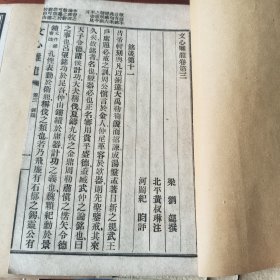 文心雕龍卷第三
梁 劉勰撰
北平黃叔琳注
河間紀昀評
銘箴第十一
昔帝軒刻輿几以弼違大禹勒筍簴而招諫成湯盤盂著日新之規武王
戶席題必戒之訓周公慎言於金人仲尼革容於欹器則先聖鑒戒其來
久矣故銘者名也觀器必也正名審用貴乎盛德蓋臧武仲之論銘也曰
天子令德諸侯計功大夫稱伐夏鑄九牧之金鼎周勒肅慎之楛矢令德
之事也呂望銘功於昆吾仲山鏤績於庸器計功之義也魏顆紀勳於景
鐘孔悝表勤於衛鼎稱伐之類也若乃飛廉有石槨之錫靈公有
文心雕龍 卷三